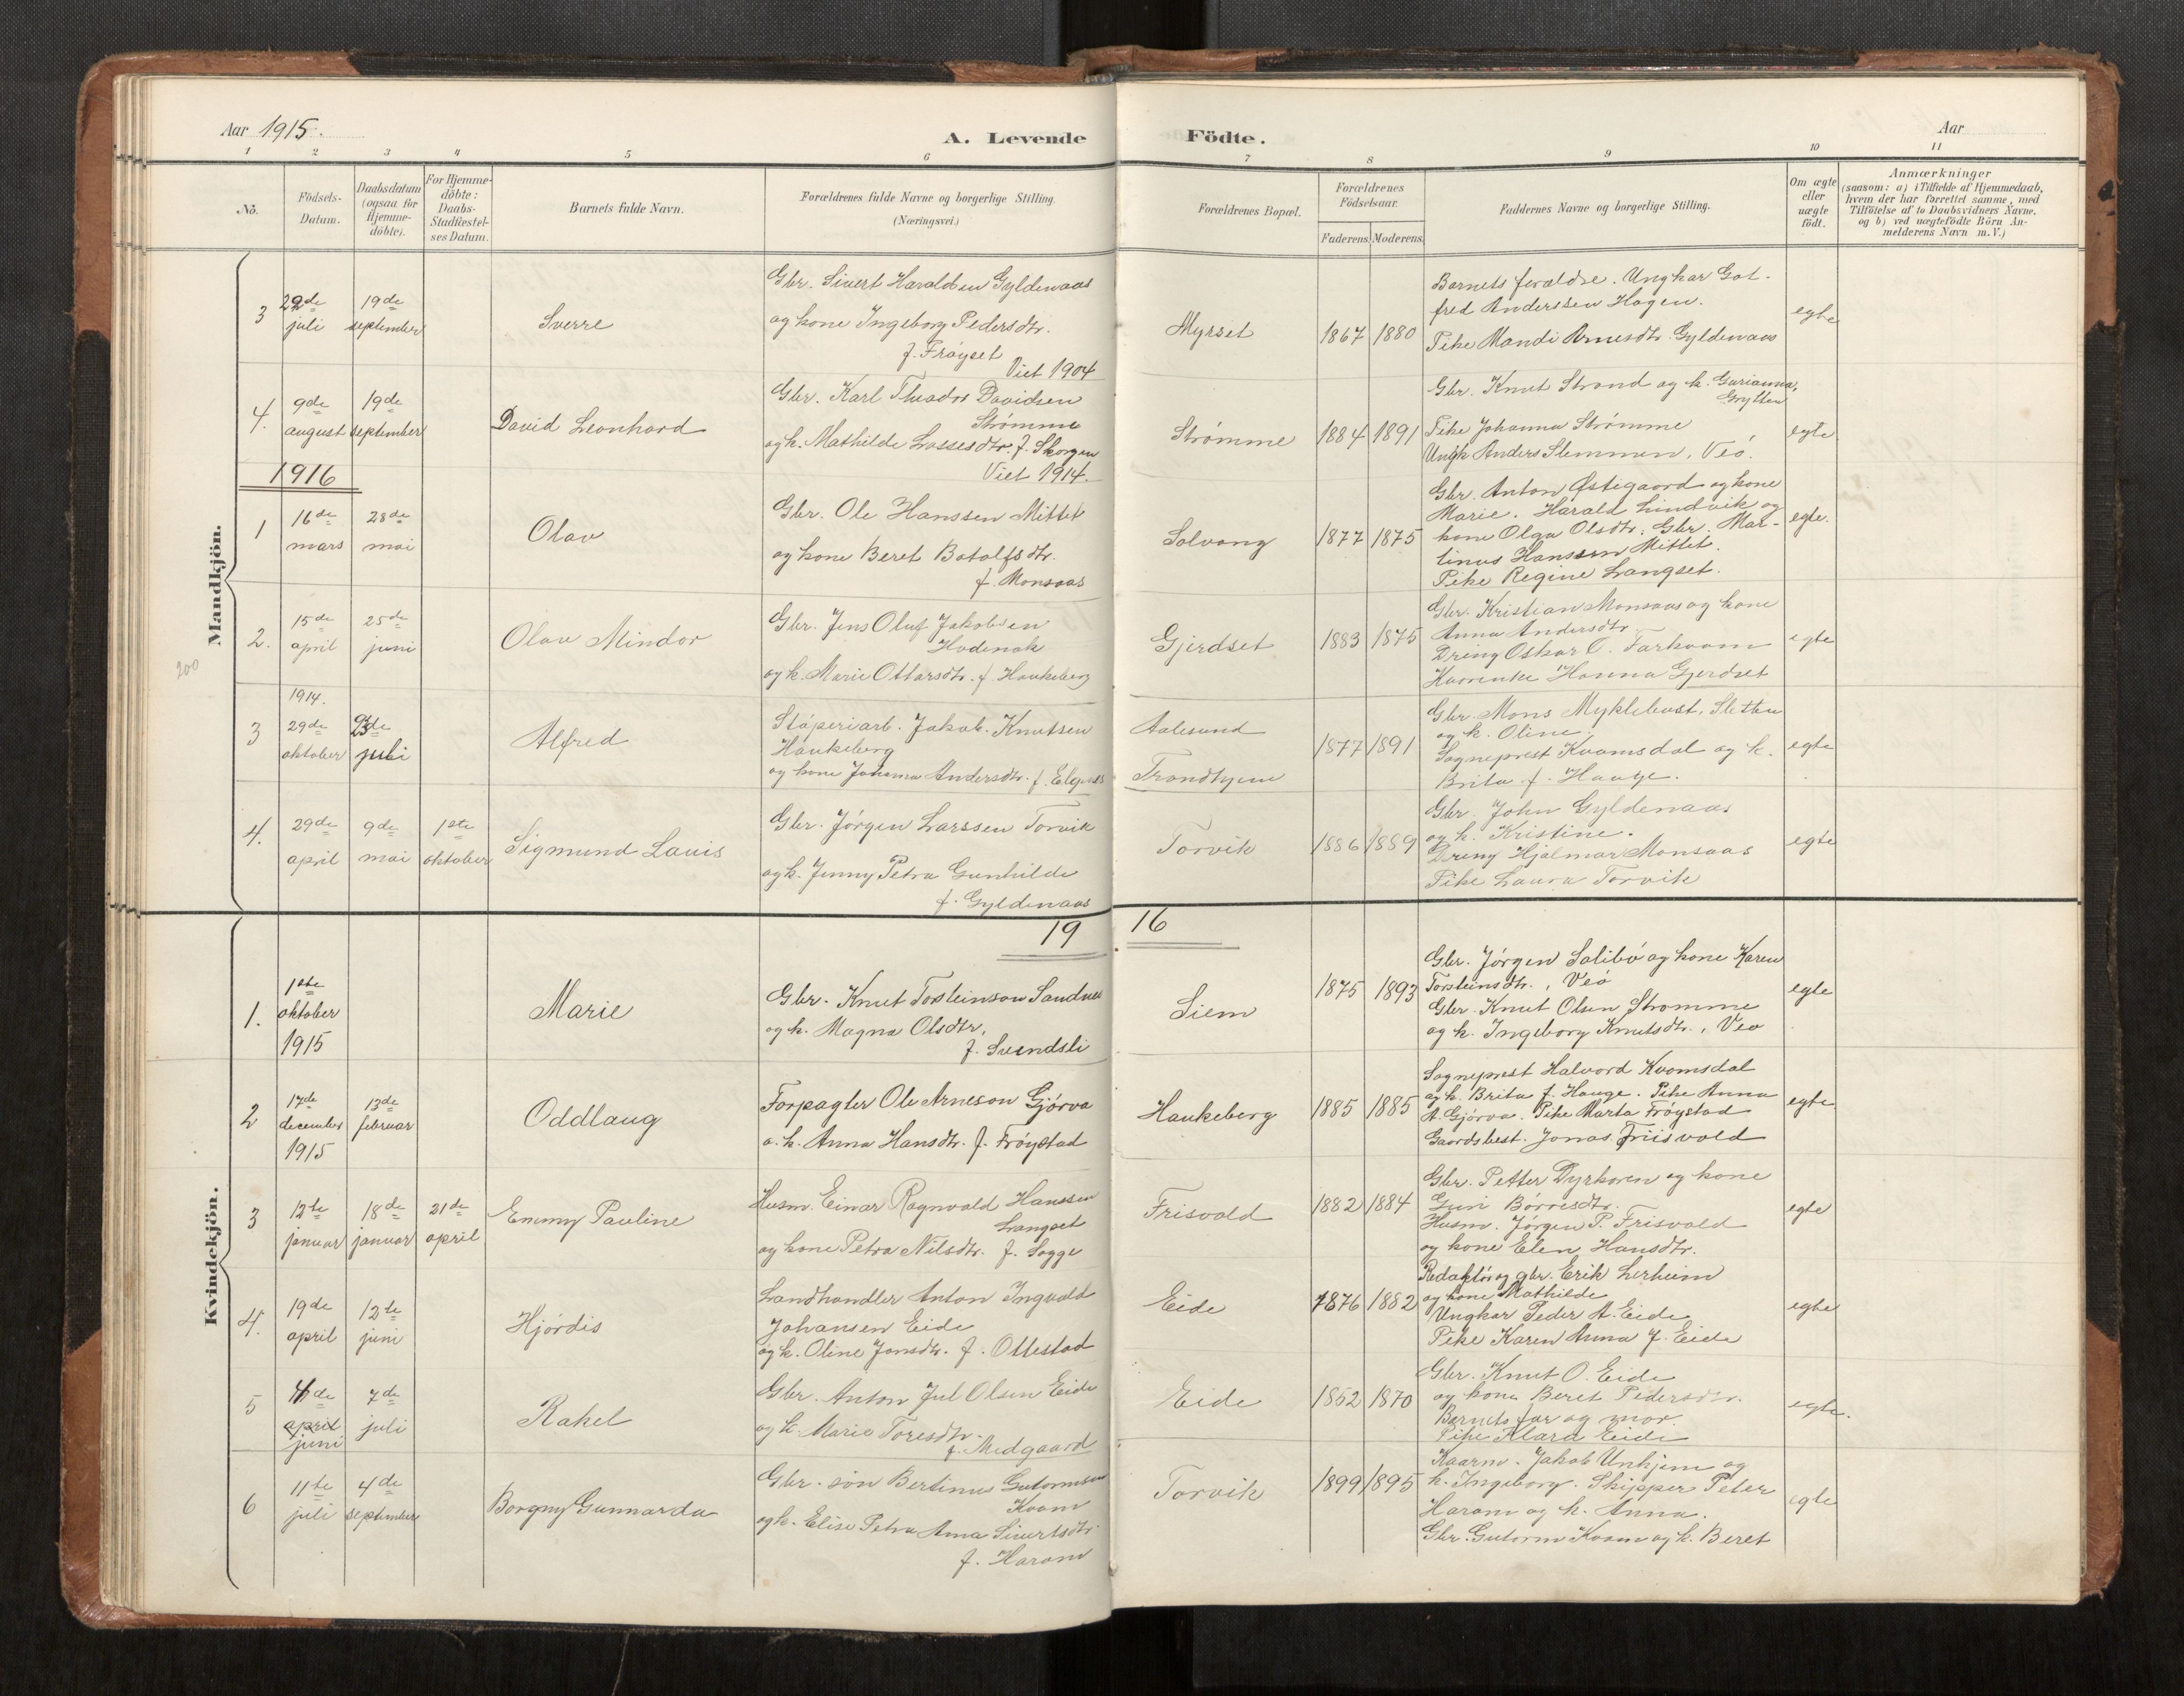 Aar 1915.
A. Levende Födte.
Aar
1 2 3 4 5 6 7 8 9 10 11
No.
Födsels-
Datum.
Daabsdatum
(ogsaa for
Hjemme-
döbte).
For Hjemme-
döbte:
Daabs-
Stadfæstel-
ses Datum.
Barnets fulde Navn.
Forældrenes fulde Navne og borgerlige Stilling.
(Næringsvei.)
Forældrenes Bopæl.
Forældrenes
Födselsaar.
Faderens. Moderens.
Faddernes Navne og borgerlige Stilling.
Om ægte
eller
uægte
födt.
Anmærkninger
(saasom: a) i Tilfælde af Hjemmedaab,
hvem der har forrettet samme, med
Tilföielse af to Daabsvidners Navne.
og b) ved uægtefödte Börn An-
melderens Navn m. V.)
Mandkjön.
3
22de
juli
19de
september
Sverre
Gbr. Sivert Haraldsen Gyldenaas
og kone Ingeborg Pedersdtr.
f. Frøyset
Viet 1904
Myrset
1867 1880
Barnets foraldre. Ungkar Got-
fred Anderssen Hagen.
Pike Mandi Arnesdtr. Gyldenaas
egte
4.
9de
august
19de
september
David Leonhard
Gbr. Karl Theador Davidsen
Strømme
og k. Mathilde Lassesdtr. f. Skorgen
Viet 1914.
Strømme
1884 1891
Gbr. Knut Strand og k. Gurianna,
Grytten
Pike Johanna Strømme
Ungk Anders Stemmen, Veö.
egte
1916
1
16de
mars
28de
mai
Olav
Gbr. Ole Hanssen Mittet
og kone Beret Botolfsdtr.
f. Monsaas
Solvang
1877 1875
Gbr. Anton Østigaard og kone
Marie. Harald Lindvik og
kone Olga Olsdtr. Gbr. Mar-
tinus Hanssen Mittet.
Pike Regine Langset.
egte.
2.
15de
april
25de
juni
Olav Mindor
Gbr. Jens Oluf Jakobsen
Hodenak
og k. Marie Ottarsdtr. f. Haukeberg
Gjerdset
1883 1875
Gbr. Kristian Monsaas og kone
Anna Andersdtr.
Dreng Oskar O. Tarkvam
Hanna Gjerdset
egte
200
3
1914.
29de
oktober
23de
juli
Alfred
Støperiarb. Jakob Knutsen
Haukeberg
og kone Johanna Andersdtr. f.
Aalesund
Trondhjem
1877 1891
Gbr. Mons Myklebust, Sletten
og k. Oline.
Sogneprest Kvamsdal og k.
Brita f. Hauge.
egte
4.
29de
april
9de
mai
1ste
oktober
Sigmund Lauis
Gbr. Jörgen Larssen Torvik
og k. Jenny Petra Gunhilde
f. Gyldenaas
Torvik
1886 1889
Gbr. John Gyldenaas
og k. Kristine.
Dreng Hjalmar Monsaas
Pike Laura Torvik
egte
19 16
Kvindekjön.
1.
1ste
oktober
1915
Marie
Gbr. Knut Torsteinson Sandnes
og k. Magna Olsdtr.
f. Svendsli
Siem
1875 1893
Gbr. Jörgen Salibö og kone Karen
Torsteinsdtr., Veö
Gbr. Knut Olsen Stromme
og k. Ingeborg Knutsdtr., Veo
egte
2
17de
december
1915
13de
februar
Oddlaug
Forpagter Ole Arneson Gjörva
o. k. Anna Hansdtr. f. Fröystad
Haukeberg
1885 1885
Sogneprest Halvord Kvamsdal
og k. Brita f. Hauge. Pike Anna
A. Gjörva. Pike Marta Fröystad
Gaardsbest. Jonas Friisvold
egte
3
12te
januar
18de
januar
21de
april
Emmy Pauline
Husm. Einar Ragnvald Hanssen
Langset
og kone Petra Nilsdtr. f. Sogge
Frisvold
1882 1884
Gbr. Petter Dyrkoren og kone
Guri Börresdtr.
Husm. Jørgen P. Frisvold
og kone Elen Hansdtr.
egte
4.
19de
april
12te
juni
Hjördis
Landhandler Anton Ingvald
Johansen Eide
og k. Oline Jonsdtr. f. Ottestad
Eide
1876 1882
Redaktör og gbr. Erik Lerheim
og kone Mathilde
Ungkar Peder A. Eide
Pike Karen Anna J. Eide
egte
5
4de
april
juni
7de
juli
Rakel
Gbr. Anton Jul Olsen Eide
og k. Marie Toresdtr.
f. Midgaard
Eide
1852 1870
Gbr. Knut O. Eide
og kone Beret Pedersdtr.
Barnets far og mor.
Pike Klara Eide
egte.
6
11te
juli
4de
september
Borgny Gunnarda
Gbr. søn Bertinus Gutormsen
Kvam
og k. Elise Petra Anna Sivertsdtr.
f. Haram
Torvik
1899 1895
Kaarm. Jakob Unhjem og
k. Ingeborg. Skipper Peter
Haram og k. Anna.
Gbr. Gutorm Kvam og k. Beret
egte